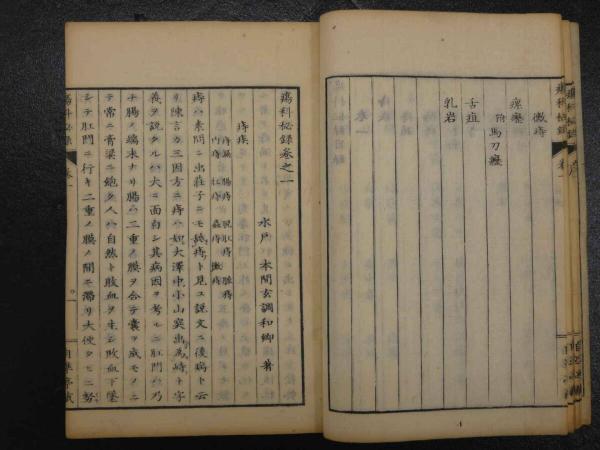 瘍科秘録 巻一
黴痔
瘰癧
附馬刀癭
舌疽
乳岩
瘍科秘録巻之一
水戸 本間玄調和卿 著
痔疾
痔漏 腸痔 脱肛痔
内痔 牡痔 蟲痔 黴痔
痔ハ素問ニ出荘子ニモ舐痔ト見ユ説文ニ後病ト云
リ陳言ガ三因方ニ痔ハ如大澤中小山突出為峙ト字
義ヲ説タルハ大ニ面白シ其病因ヲ考ルニ肛門ハ乃
チ腸ノ端末ナリ腸ハ二重ノ膜ヲ合テ嚢ヲ成モノニ
テ常ニ膏梁ニ飽ク人ハ自然ト敗血ヲ生シ敗血下墜
シテ肛門ニ行キ二重ノ膜ノ間ニ滞リ大便ヲスルニ努